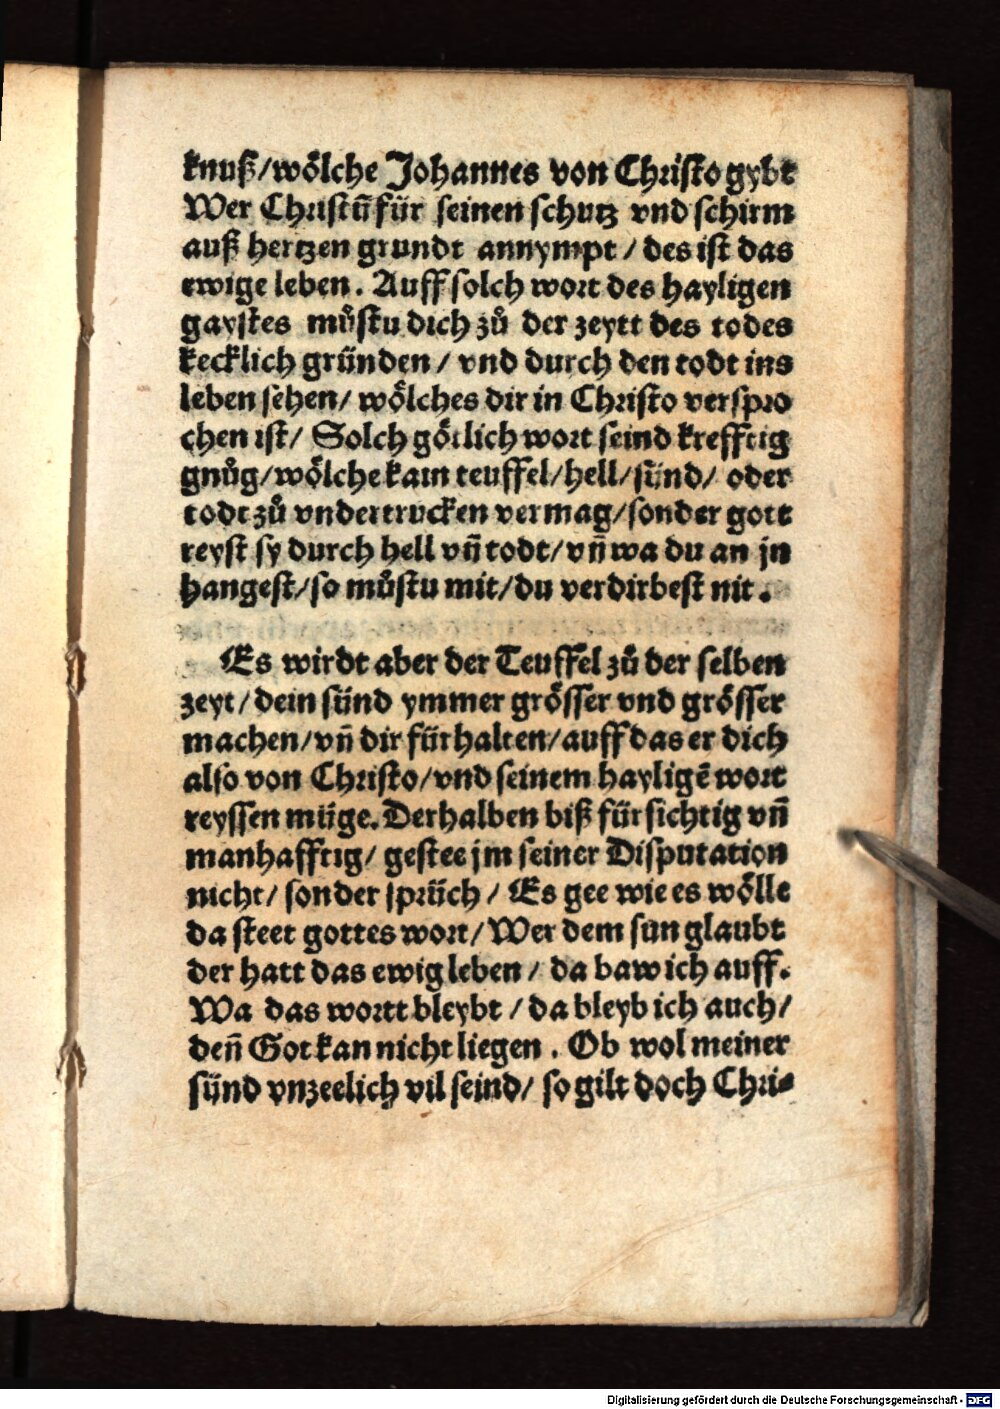 knuß/woͤlche Johannes von Christo gybt
Wer Christū für seinen schutz vnd schirm
auß hertzen grundt annympt / des ist das
ewige leben. Auff solch wort des hayligen
gaystes muͦstu dich zuͦ der zeytt des todes
kecklich gründen / vnd durch den todt ins
leben sehen/ woͤlches dir in Christo verspro
chen ist/ Solch goͤtlich wort seind krefftig
gnuͦg/woͤlche kain teuffel/hell/sünd/ oder
todt zuͦ vndertrucken vermag/sonder gott
reyst sy durch hell vñ todt/vñ wa du an jn
hangest/so muͦstu mit/du verdirbest nit.
Es wirdt aber der Teuffel zuͦ der selben
zeyt/dein sünd ymmer groͤsser vnd groͤsser
machen/vñ dir fürhalten/auff das er dich
also von Christo/vnd seinem hayligē wort
reyssen müge. Derhalben biß fürsichtig vñ
manhafftig/ gestee jm seiner Disputation
nicht/ sonder sprüch / Es gee wie es woͤlle
da steet gottes wort/ Wer dem sun glaubt
der hatt das ewig leben / da baw ich auff.
Wa das wortt bleybt / da bleyb ich auch/
deñ Got kan nicht liegen. Ob wol meiner
sünd vnzeelich vil seind/ so gilt doch Chri-
Digitalisierung gefördert durch die Deutsche Forschungsgemeinschaft - DFG